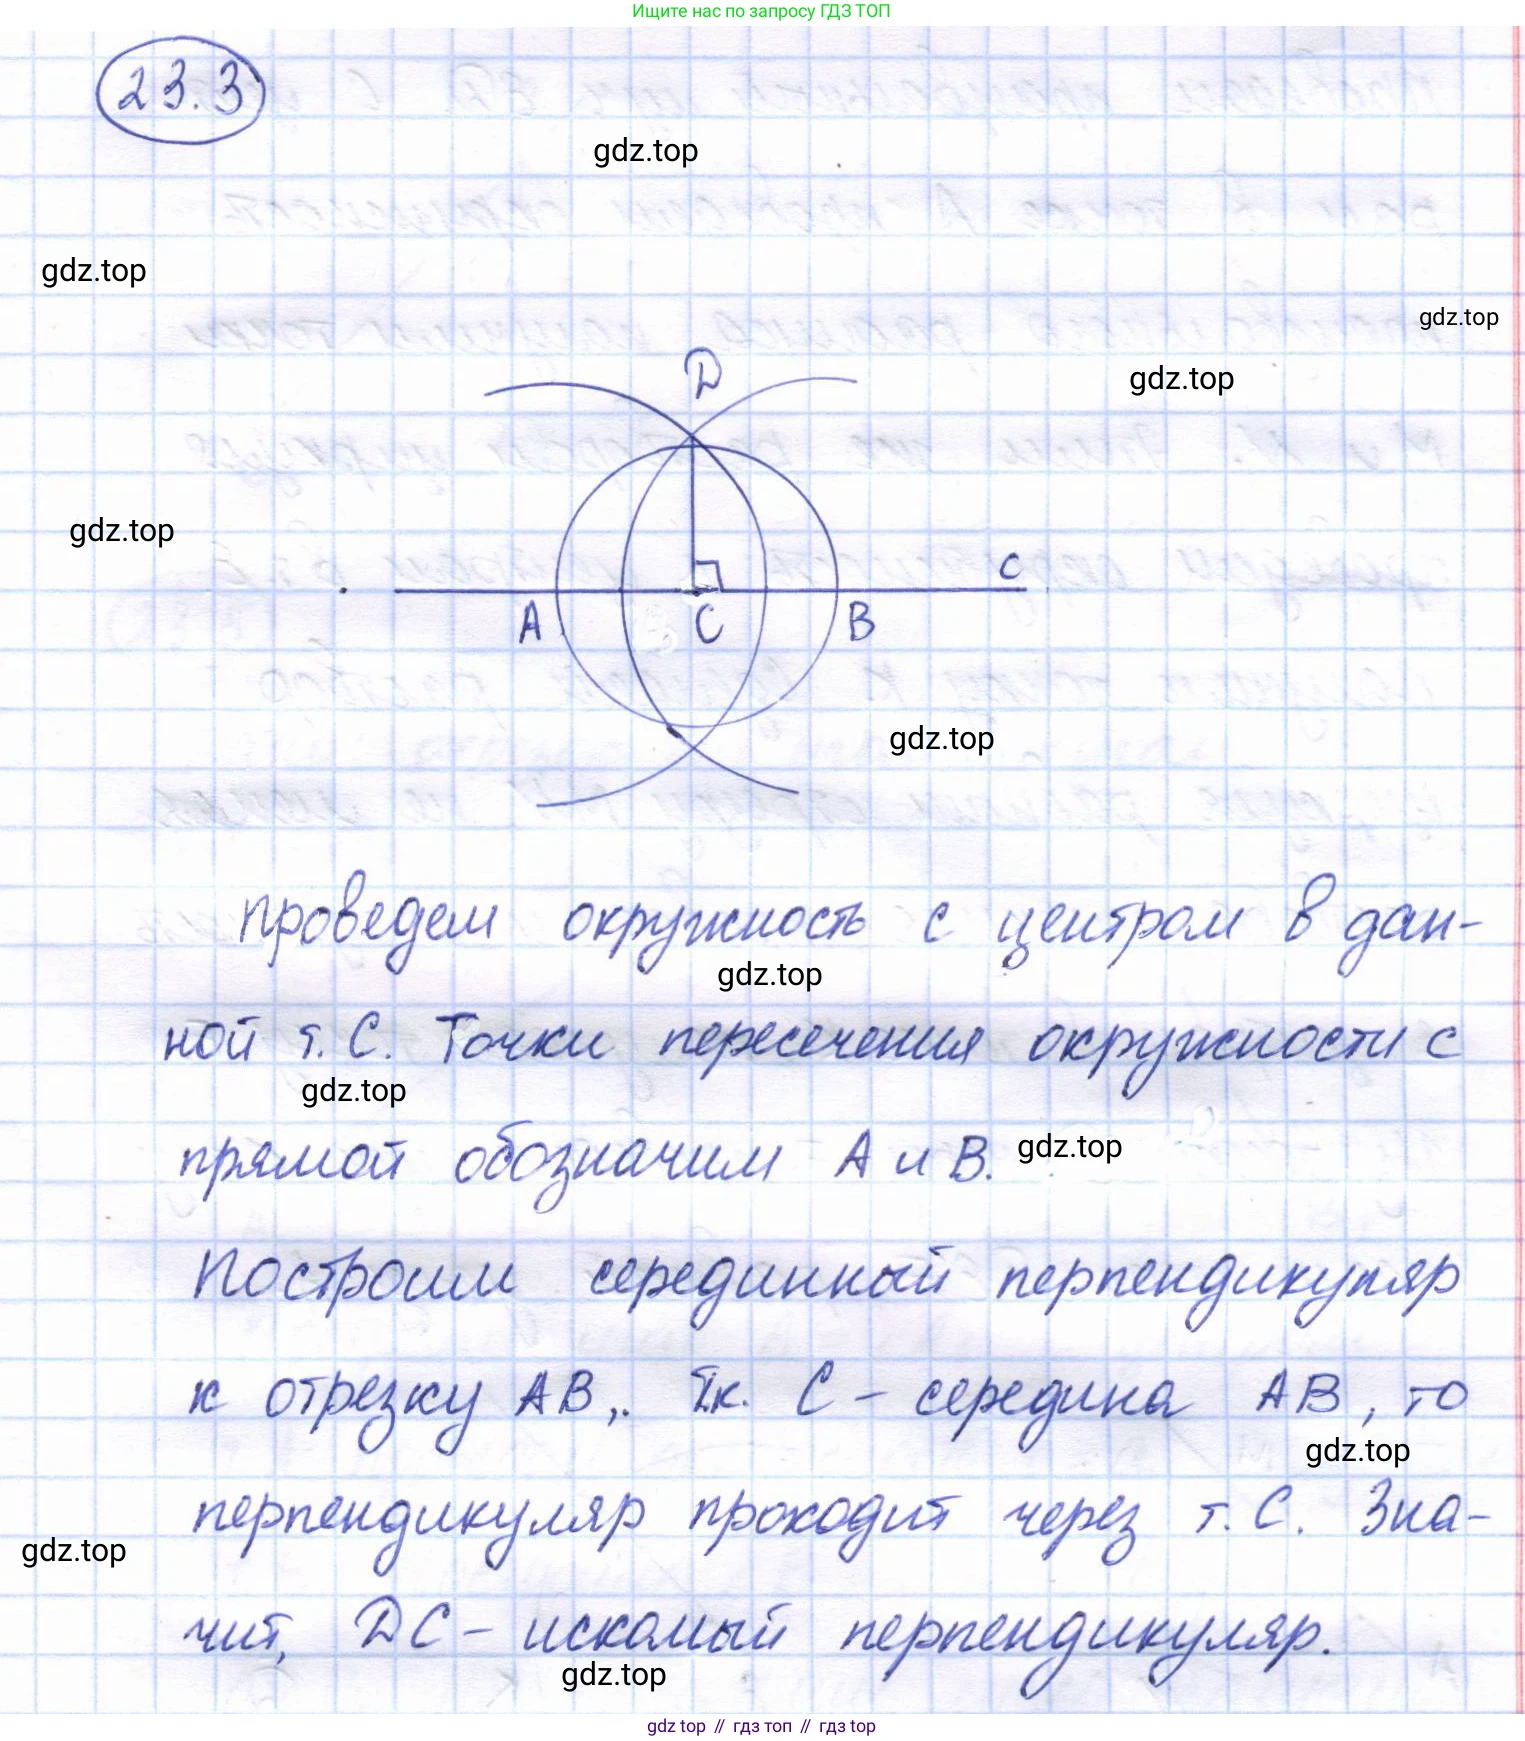 Ищите нас по запросу ГДЗ ТОП
23.3
gdz.top
gdz.top
gdz.top
gdz.top
D
gdz.top
c
A C B
gdz.top
проведем окружность с центром в дан-
gdz.top
ной т. С. Точки пересечения окружности с
gdz.top
прямой обозначим А и В.
gdz.top
Построим серединный перпендикуляр
к отрезку АВ,. Т.к. С – середина АВ, то
gdz.top
перпендикуляр проходит через т. С. Зна-
gdz.top
чит, DC – искомый перпендикуляр.
gdz.top
gdz top // гдз топ // гдз top